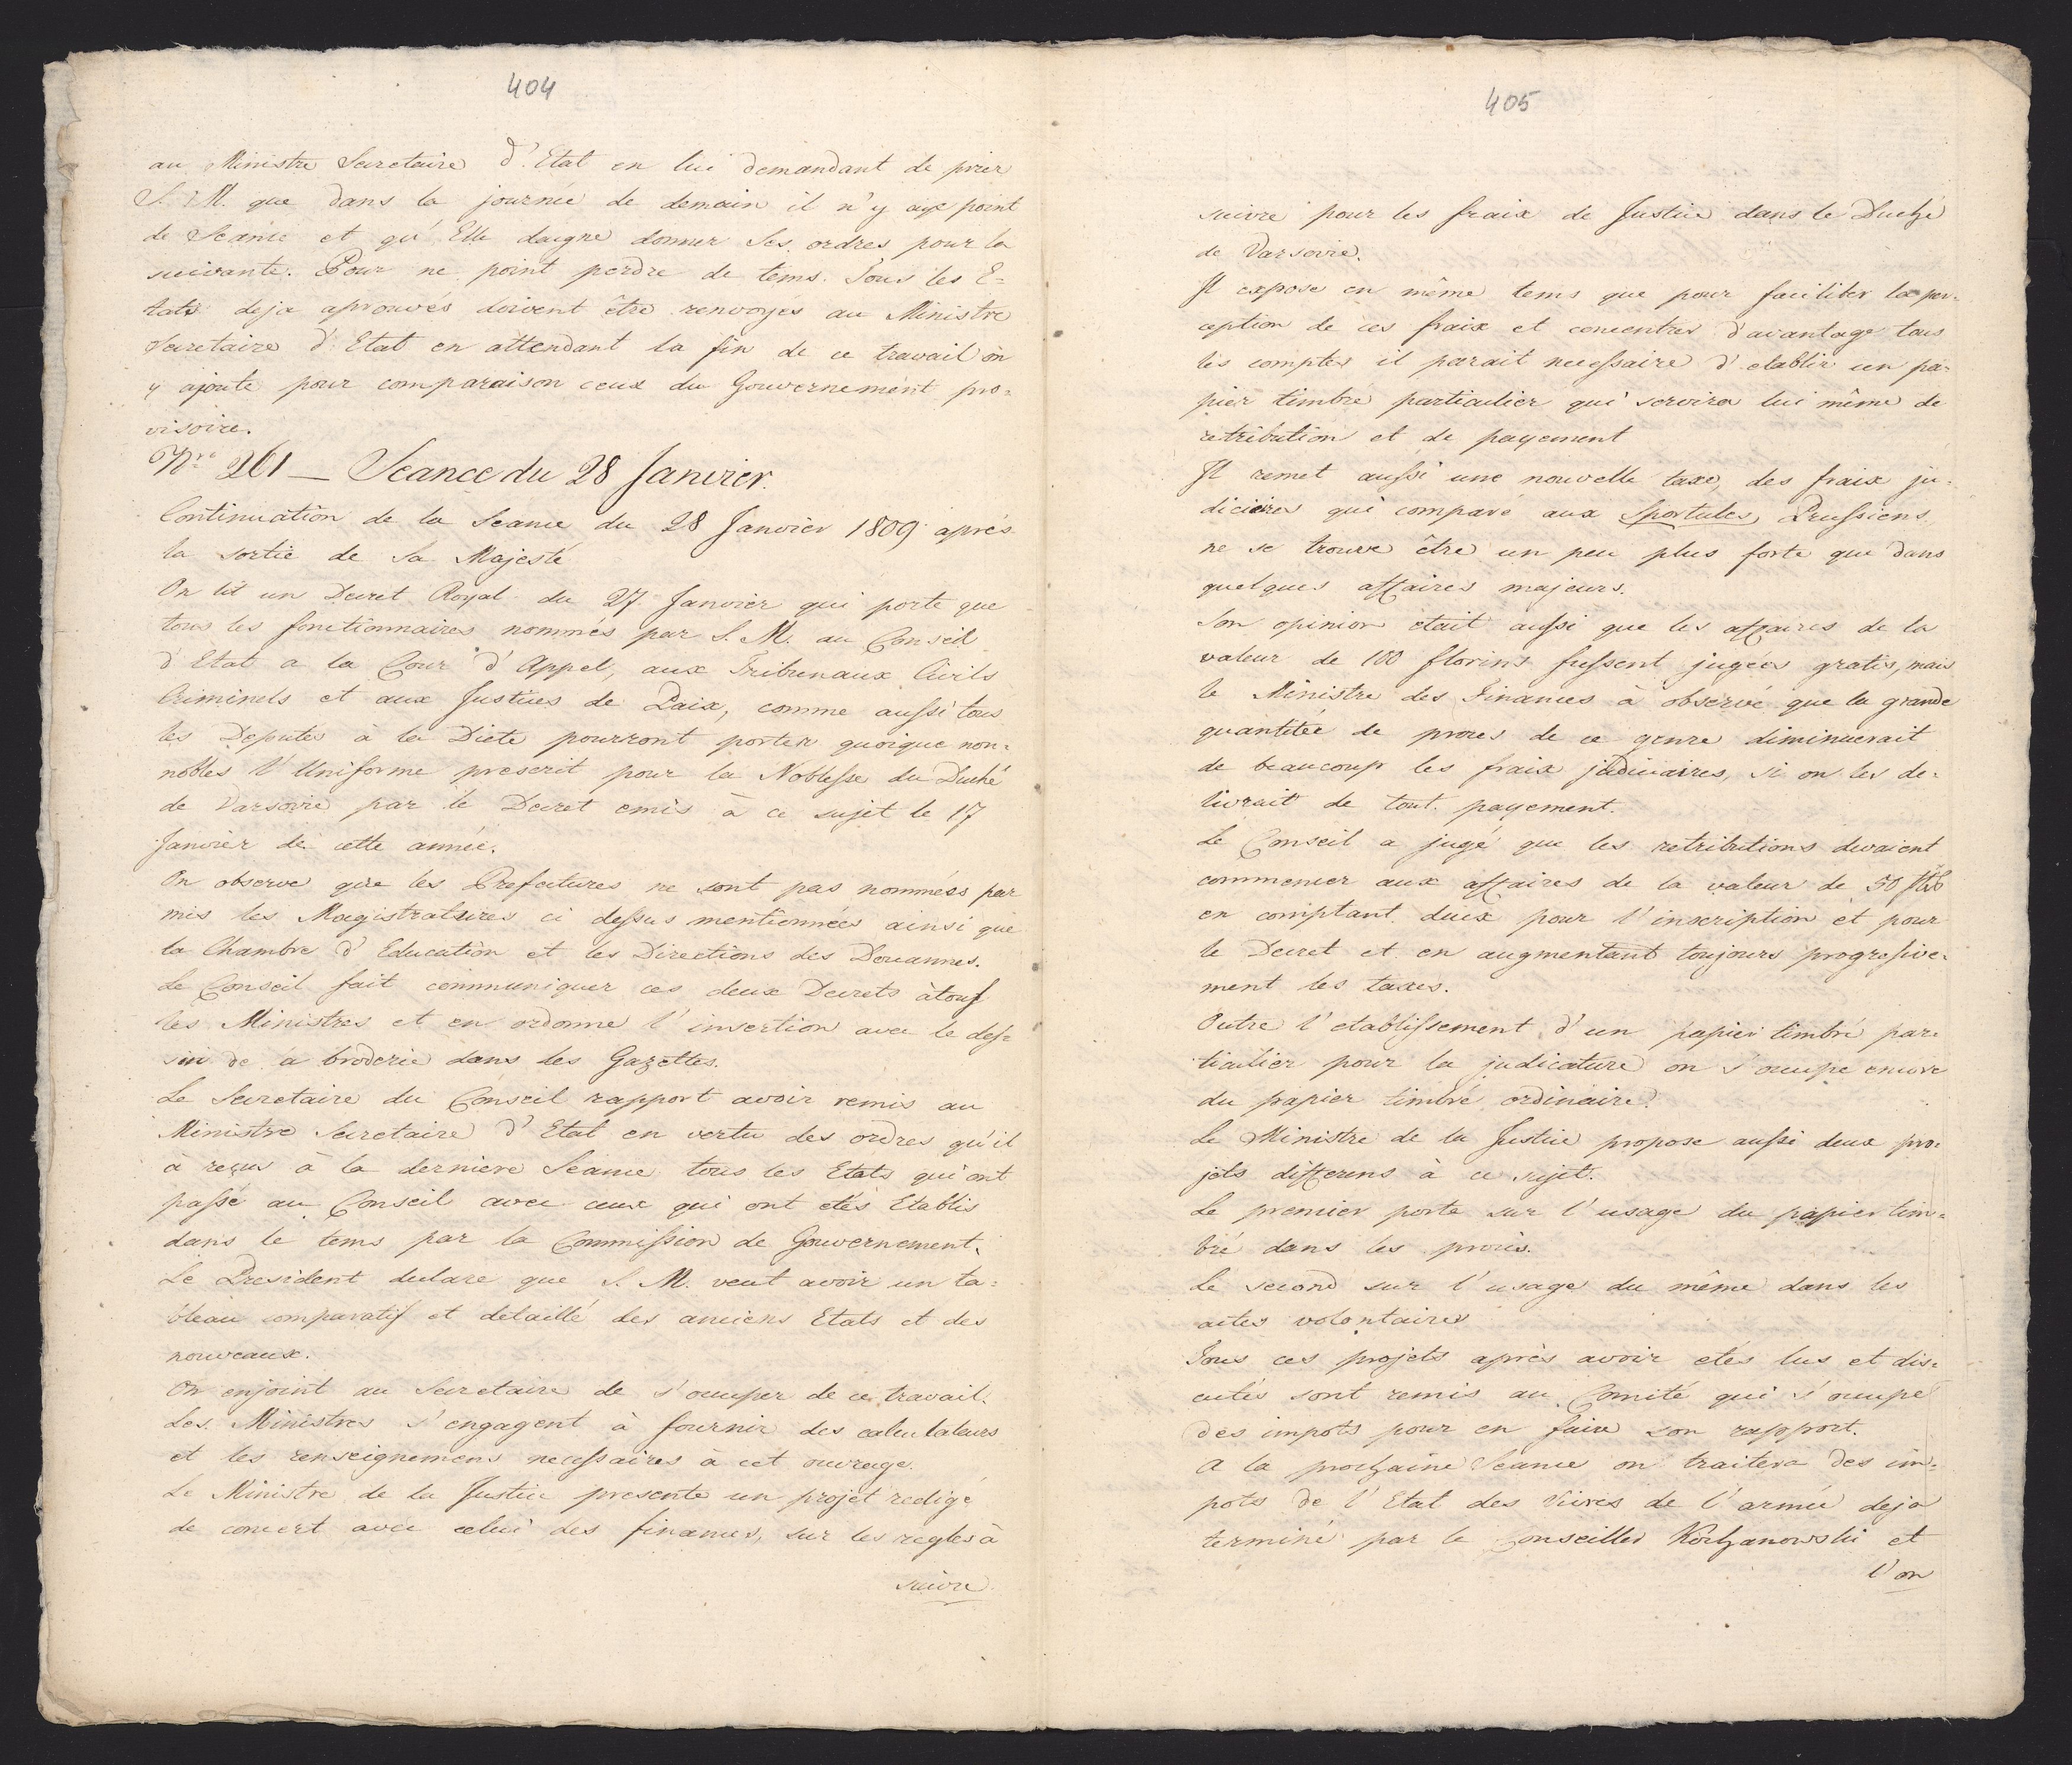 404
au Ministre Secretaire d'Etat en lui demandant de prier
S. M. que dans la journée de demain il n'y aye point
de Seance et qu'Elle daigne donner Ses ordres pour la
suivante. Pour ne point perdre de tems. Tous les E=
tats deja aprouvés doivent être renvoyés au Ministre
Secretaire d'Etat en attendant la fin de ce travail on
y ajoute pour comparaison ceux du Gouvernement pro=
visoire.
Nro 261 — Seance du 28 Janvier.
Continuation de la Seance du 28 Janvier 1809 aprés
la sortie de Sa Majesté
On lit un Decret Royal du 27 Janvier qui porte que
tous les fonctionnaires nommés par S. M. au Conseil
d'Etat a la Cour d'Appel, aux Tribunaux Civils
Criminels et aux Justices de Paix, comme aussi tous
les Deputés à la Diete pourront porter quoique non=
nobles l'Uniforme prescrit pour la Noblesse du Duché
de Varsovie par le Decret emis à ce sujet le 17
Janvier de cette année.
On observe que les Prefectures ne sont pas nommées par
mis les Magistratures ci dessus mentionnées ainsi que
la Chambre d'Education et les Directions des Douannes.
Le Conseil fait communiquer ces deux Decrets à tous
les Ministres et en ordonne l'insertion avec le des=
sin de la broderie dans les Gazettes.
Le Secretaire du Conseil rapport avoir remis au
Ministre Secretaire d'Etat en vertu des ordres qu'il
à reçus à la derniere Séance tous les Etats qui ont
passé au Conseil avec ceux qui ont etés Etablis
dans le tems par la Commission de Gouvernement.
Le President declare que S. M. veut avoir un ta=
bleau comparatif et detaillé des anciens Etats et des
nouveaux.
On enjoint au Secretaire de s'occuper de ce travail.
Les Ministres s'engagent à fournir des calculateurs
et les renseignemens necessaires à cet ouvrage.
Le Ministre de la Justice presente un projet redigé
de concert avec celui des finances, sur les regles à
suivre
405
suivre pour les fraix de Justice dans le Duché
de Varsovie.
Il expose en même tems que pour faciliter la per=
ception de ces fraix et concentrer d'avantage tous
les comptes il parait necessaire d'etablir un pa=
pier timbré particulier qui servira lui même de
retribution et de payement
Il remet aussi une nouvelle taxe, des fraix ju=
diciaires qui comparé aux Sportules Prussiens
ne se trouve être un peu plus forte que dans
quelques affaires majeurs.
Son opinion était aussi que les affaires de la
valeur de 100 florins fussent jugées gratis, mais
le Ministre des Finances à observé que la grande
quantitée de proces de ce genre diminuerait
de beaucoup les fraix judiciaires, si on les de=
livrait de tout payement.
Le Conseil a jugé que les retributions devaient
commencer aux affaires de la valeur de 50
en comptant deux pour l'inscription et pour
le Decret et en augmentant toujours progressive=
ment les taxes.
Outre l'etablissement d'un papier timbré par=
ticulier pour la judicature on s'occupe encore
du papier timbré ordinaire.
Le Ministre de la Justice propose aussi deux pro=
jets differens à ce sujet.
Le premier porte sur l'usage du papier tim=
bré dans les procès.
Le second sur l'usage du même dans les
actes volontaires
Tous ces projets après avoir etés lus et dis=
cutés sont remis au Comité qui s'occupe
des impots pour en faire son rapport.
A la prochaine Seance on traitera des im=
pots de l'Etat des vivres de l'armée deja
terminé par le Conseiller Kochanowski et
l'on